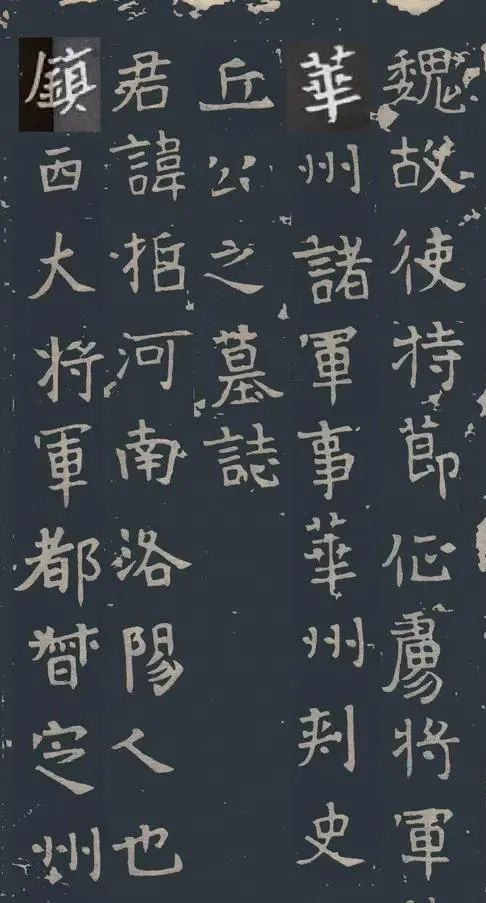 魏故使持節征虜將軍
華州諸軍事華州刺史
丘公之墓誌
君諱哲河南洛陽人也
鎮西大將軍都督定州